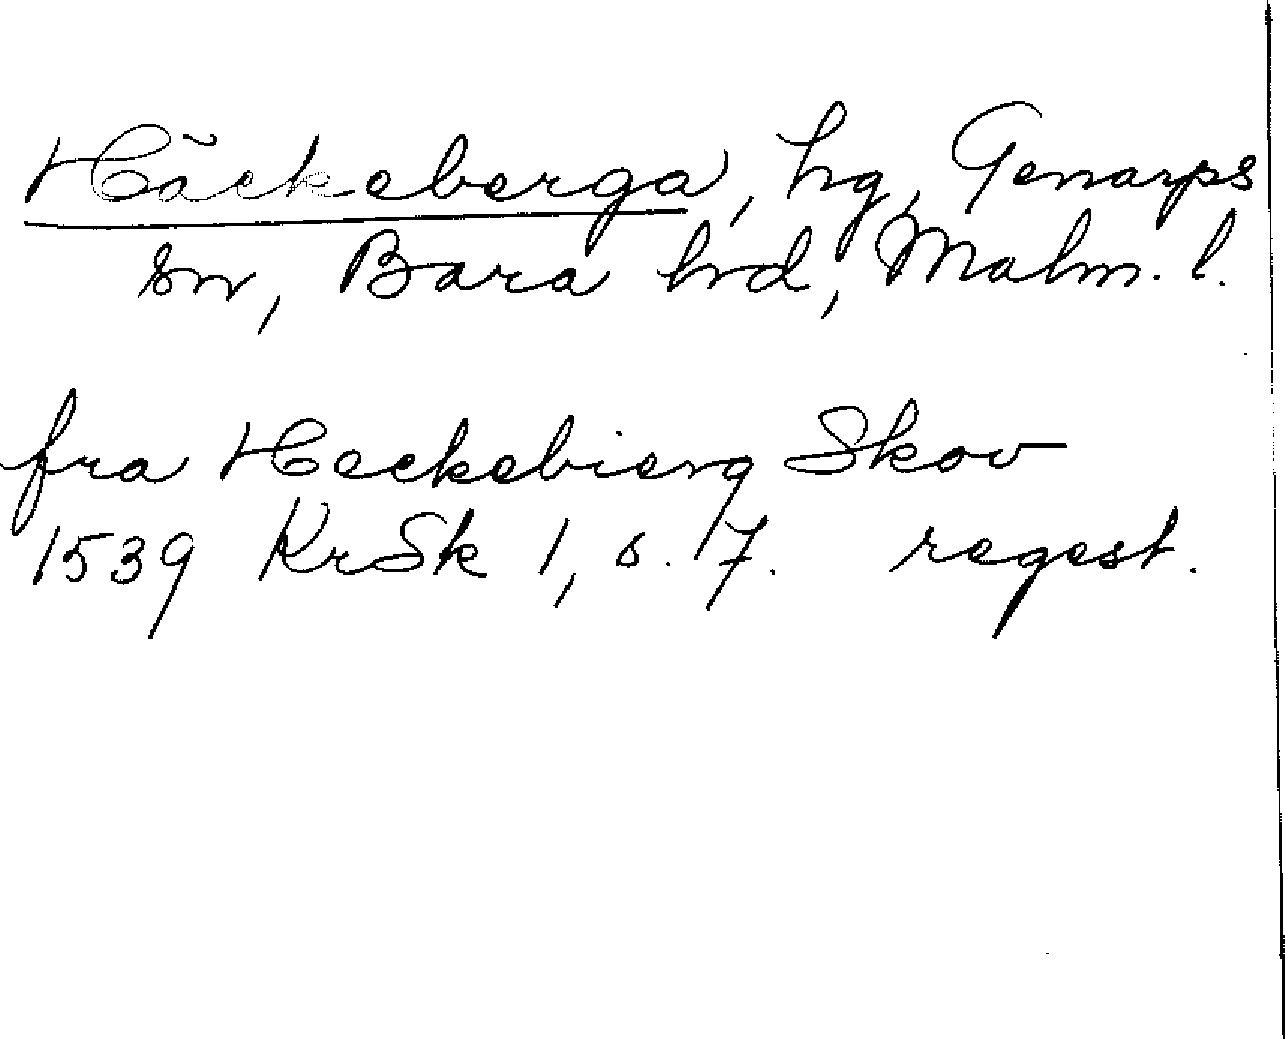 Häckeberga, hg, Genarps
sn, Bara hrd, Malm. l.
fra Heckebierg Skov
1539 KrSk 1, s. 7. regest.